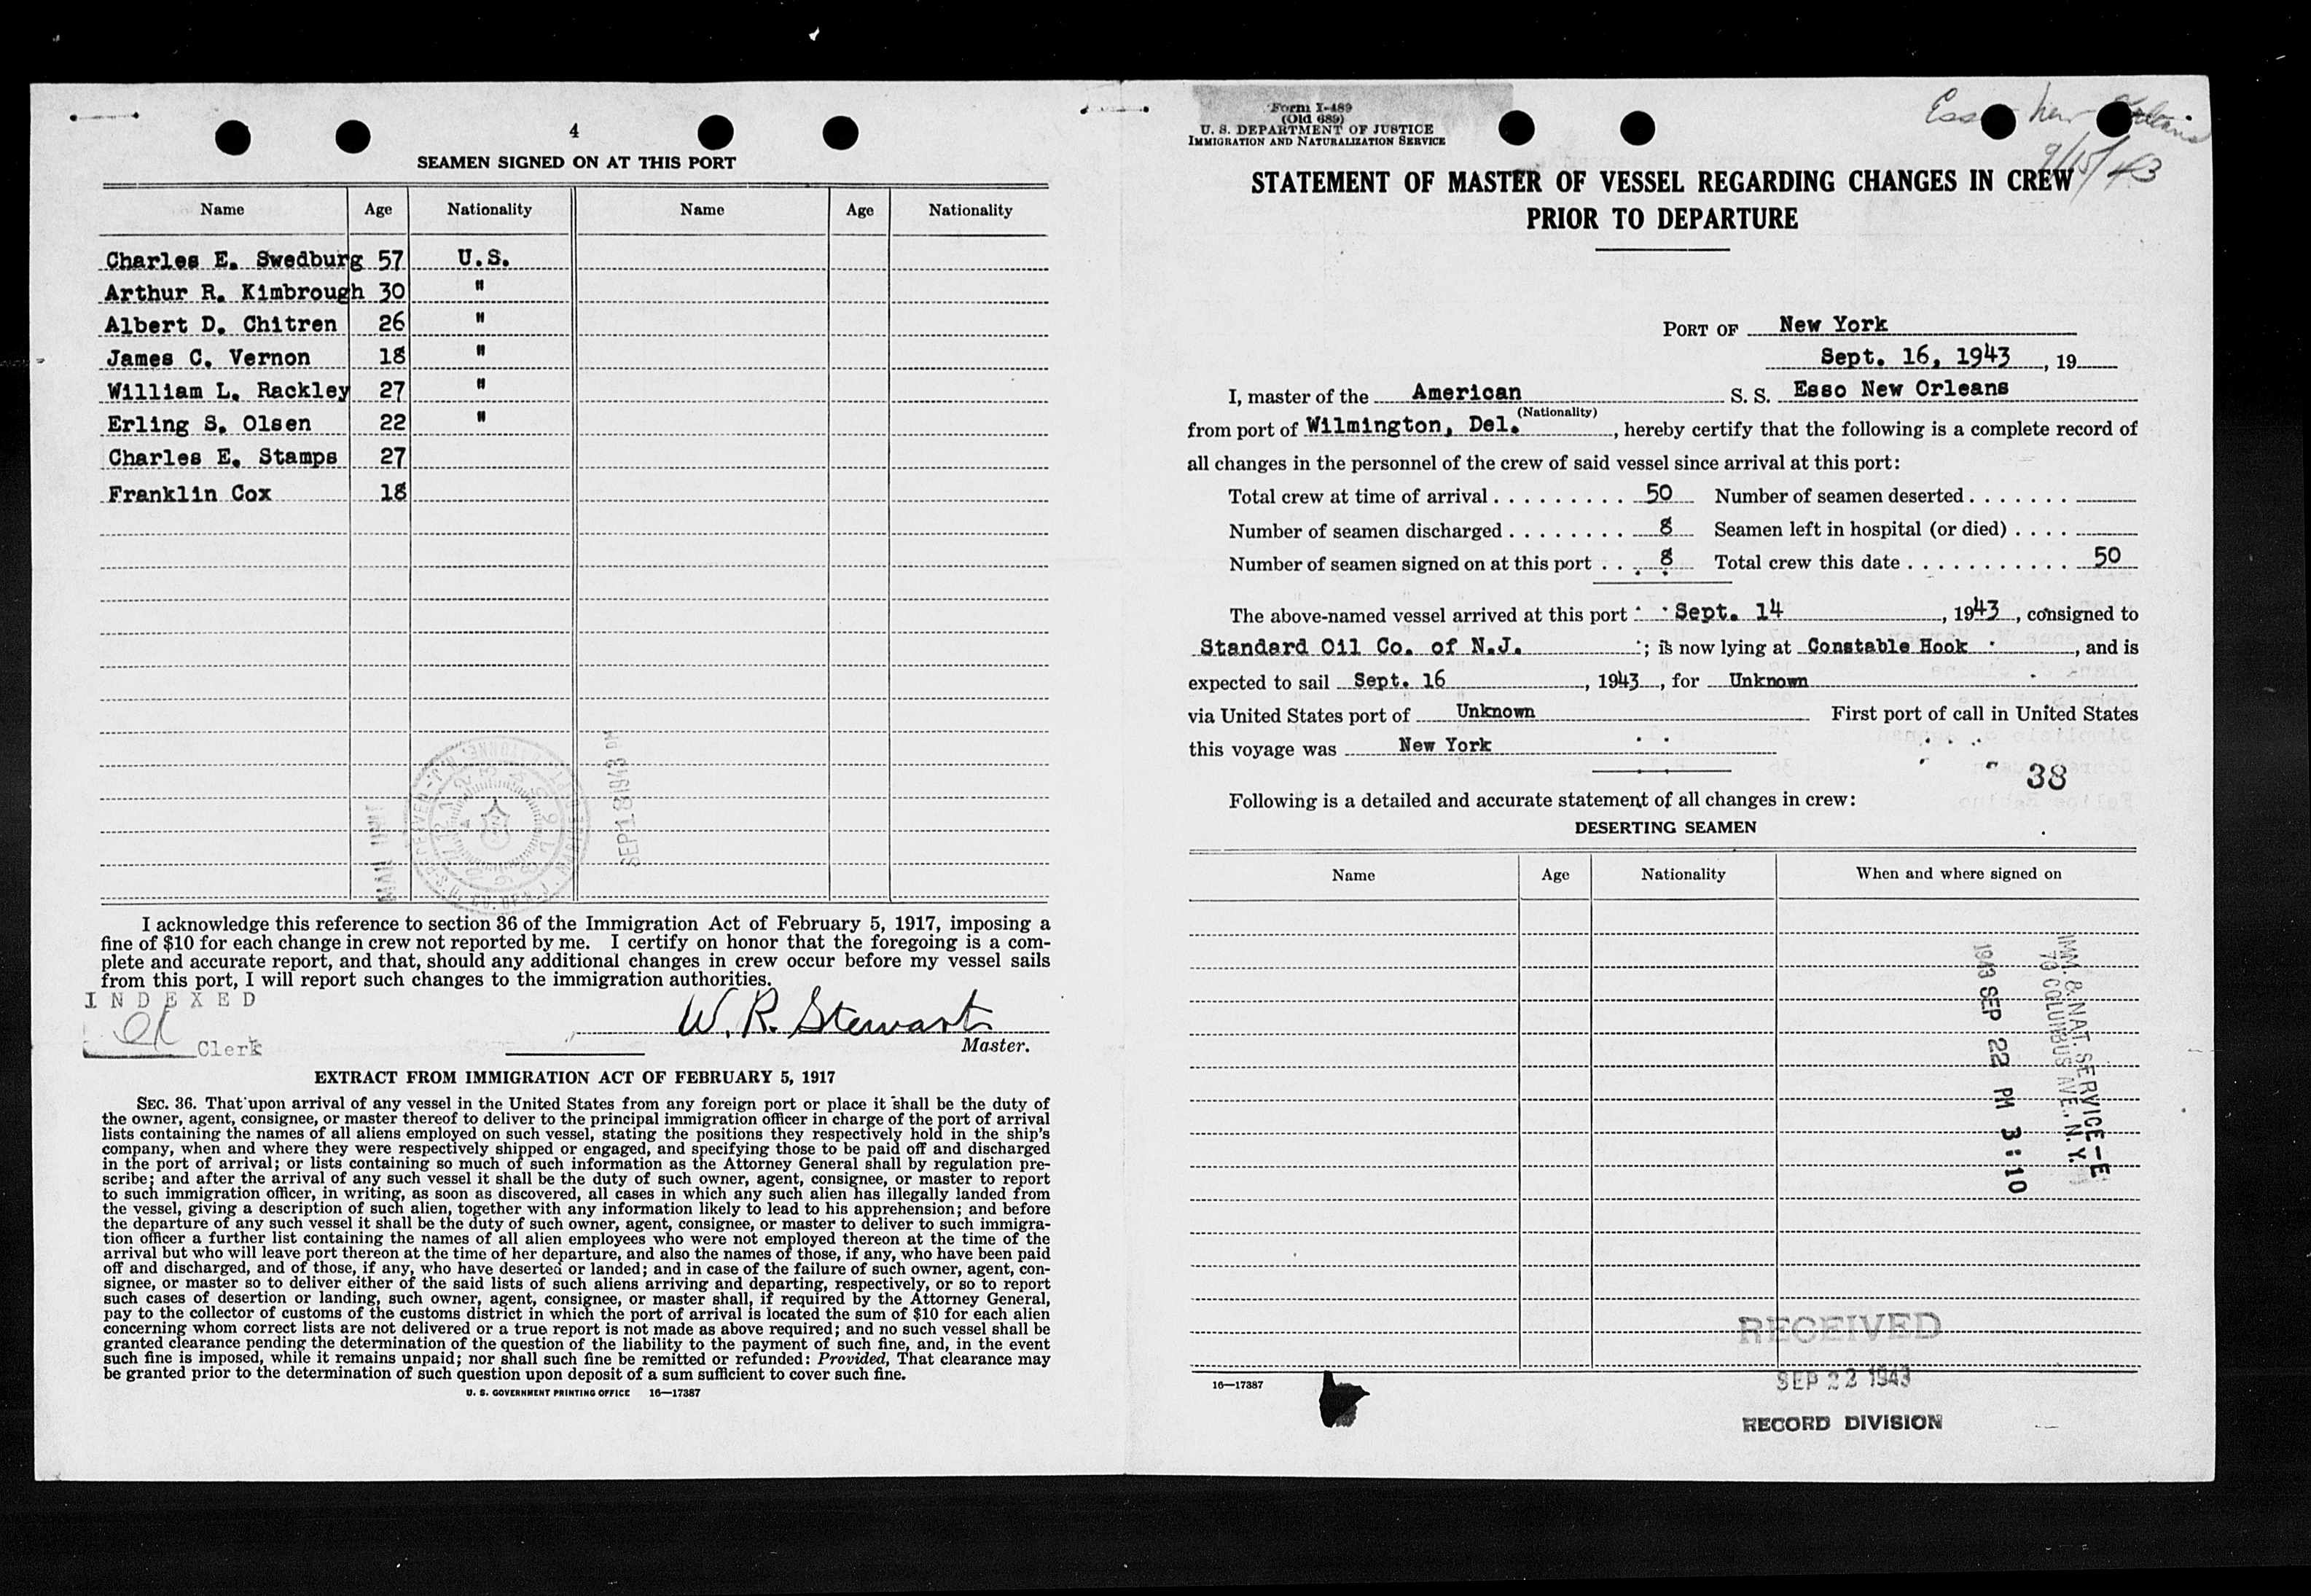 4
SEAMEN SIGNED ON AT THIS PORT
Name Age Nationality Name Age Nationality
Charles E. Swedburg 57 U.S.
Arthur R. Kimbrough 30 "
Albert D. Chitren 26 "
James C. Vernon 18 "
William L. Rackley 27 "
Erling S. Olsen 22 "
Charles E. Stamps 27
Franklin Cox 18
MAIL UNIT
SEP 18 1943
I acknowledge this reference to section 36 of the Immigration Act of February 5, 1917, imposing a
fine of $10 for each change in crew not reported by me. I certify on honor that the foregoing is a com-
plete and accurate report, and that, should any additional changes in crew occur before my vessel sails
from this port, I will report such changes to the immigration authorities.
INDEXED
Clerk
W. R. Stewart
Master.
EXTRACT FROM IMMIGRATION ACT OF FEBRUARY 5, 1917
SEC. 36. That upon arrival of any vessel in the United States from any foreign port or place it shall be the duty of
the owner, agent, consignee, or master thereof to deliver to the principal immigration officer in charge of the port of arrival
lists containing the names of all aliens employed on such vessel, stating the positions they respectively hold in the ship's
company, when and where they were respectively shipped or engaged, and specifying those to be paid off and discharged
in the port of arrival; or lists containing so much of such information as the Attorney General shall by regulation pre-
scribe; and after the arrival of any such vessel it shall be the duty of such owner, agent, consignee, or master to report
to such immigration officer, in writing, as soon as discovered, all cases in which any such alien has illegally landed from
the vessel, giving a description of such alien, together with any information likely to lead to his apprehension; and before
the departure of any such vessel it shall be the duty of such owner, agent, consignee, or master to deliver to such immigra-
tion officer a further list containing the names of all alien employees who were not employed thereon at the time of the
arrival but who will leave port thereon at the time of her departure, and also the names of those, if any, who have been paid
off and discharged, and of those, if any, who have deserted or landed; and in case of the failure of such owner, agent, con-
signee, or master so to deliver either of the said lists of such aliens arriving and departing, respectively, or so to report
such cases of desertion or landing, such owner, agent, consignee, or master shall, if required by the Attorney General,
pay to the collector of customs of the customs district in which the port of arrival is located the sum of $10 for each alien
concerning whom correct lists are not delivered or a true report is not made as above required; and no such vessel shall be
granted clearance pending the determination of the question of the liability to the payment of such fine, and, in the event
such fine is imposed, while it remains unpaid; nor shall such fine be remitted or refunded: Provided, That clearance may
be granted prior to the determination of such question upon deposit of a sum sufficient to cover such fine.
U. S. GOVERNMENT PRINTING OFFICE 16—17387
Form I-489
(Old 689)
U. S. DEPARTMENT OF JUSTICE
IMMIGRATION AND NATURALIZATION SERVICE
Esso New Orleans
9/15/43
STATEMENT OF MASTER OF VESSEL REGARDING CHANGES IN CREW
PRIOR TO DEPARTURE
PORT OF New York
Sept. 16, 1943, 19
I, master of the American S. S. Esso New Orleans
(Nationality)
from port of Wilmington, Del., hereby certify that the following is a complete record of
all changes in the personnel of the crew of said vessel since arrival at this port:
Total crew at time of arrival . . . . . . . . . 50 Number of seamen deserted . . . . . . .
Number of seamen discharged . . . . . . . . 8 Seamen left in hospital (or died) . . . .
Number of seamen signed on at this port . . 8 Total crew this date . . . . . . . . . . . . 50
The above-named vessel arrived at this port Sept. 14, 1943, consigned to
Standard Oil Co. of N.J.; is now lying at Constable Hook, and is
expected to sail Sept. 16, 1943, for Unknown
via United States port of Unknown First port of call in United States
this voyage was New York
38
Following is a detailed and accurate statement of all changes in crew:
DESERTING SEAMEN
Name Age Nationality When and where signed on
IMM. & NAT. SERVICE-E
70 COLUMBUS AVE., N. Y.
1943 SEP 22 PM 3:10
RECEIVED
SEP 22 1943
RECORD DIVISION
16—17387